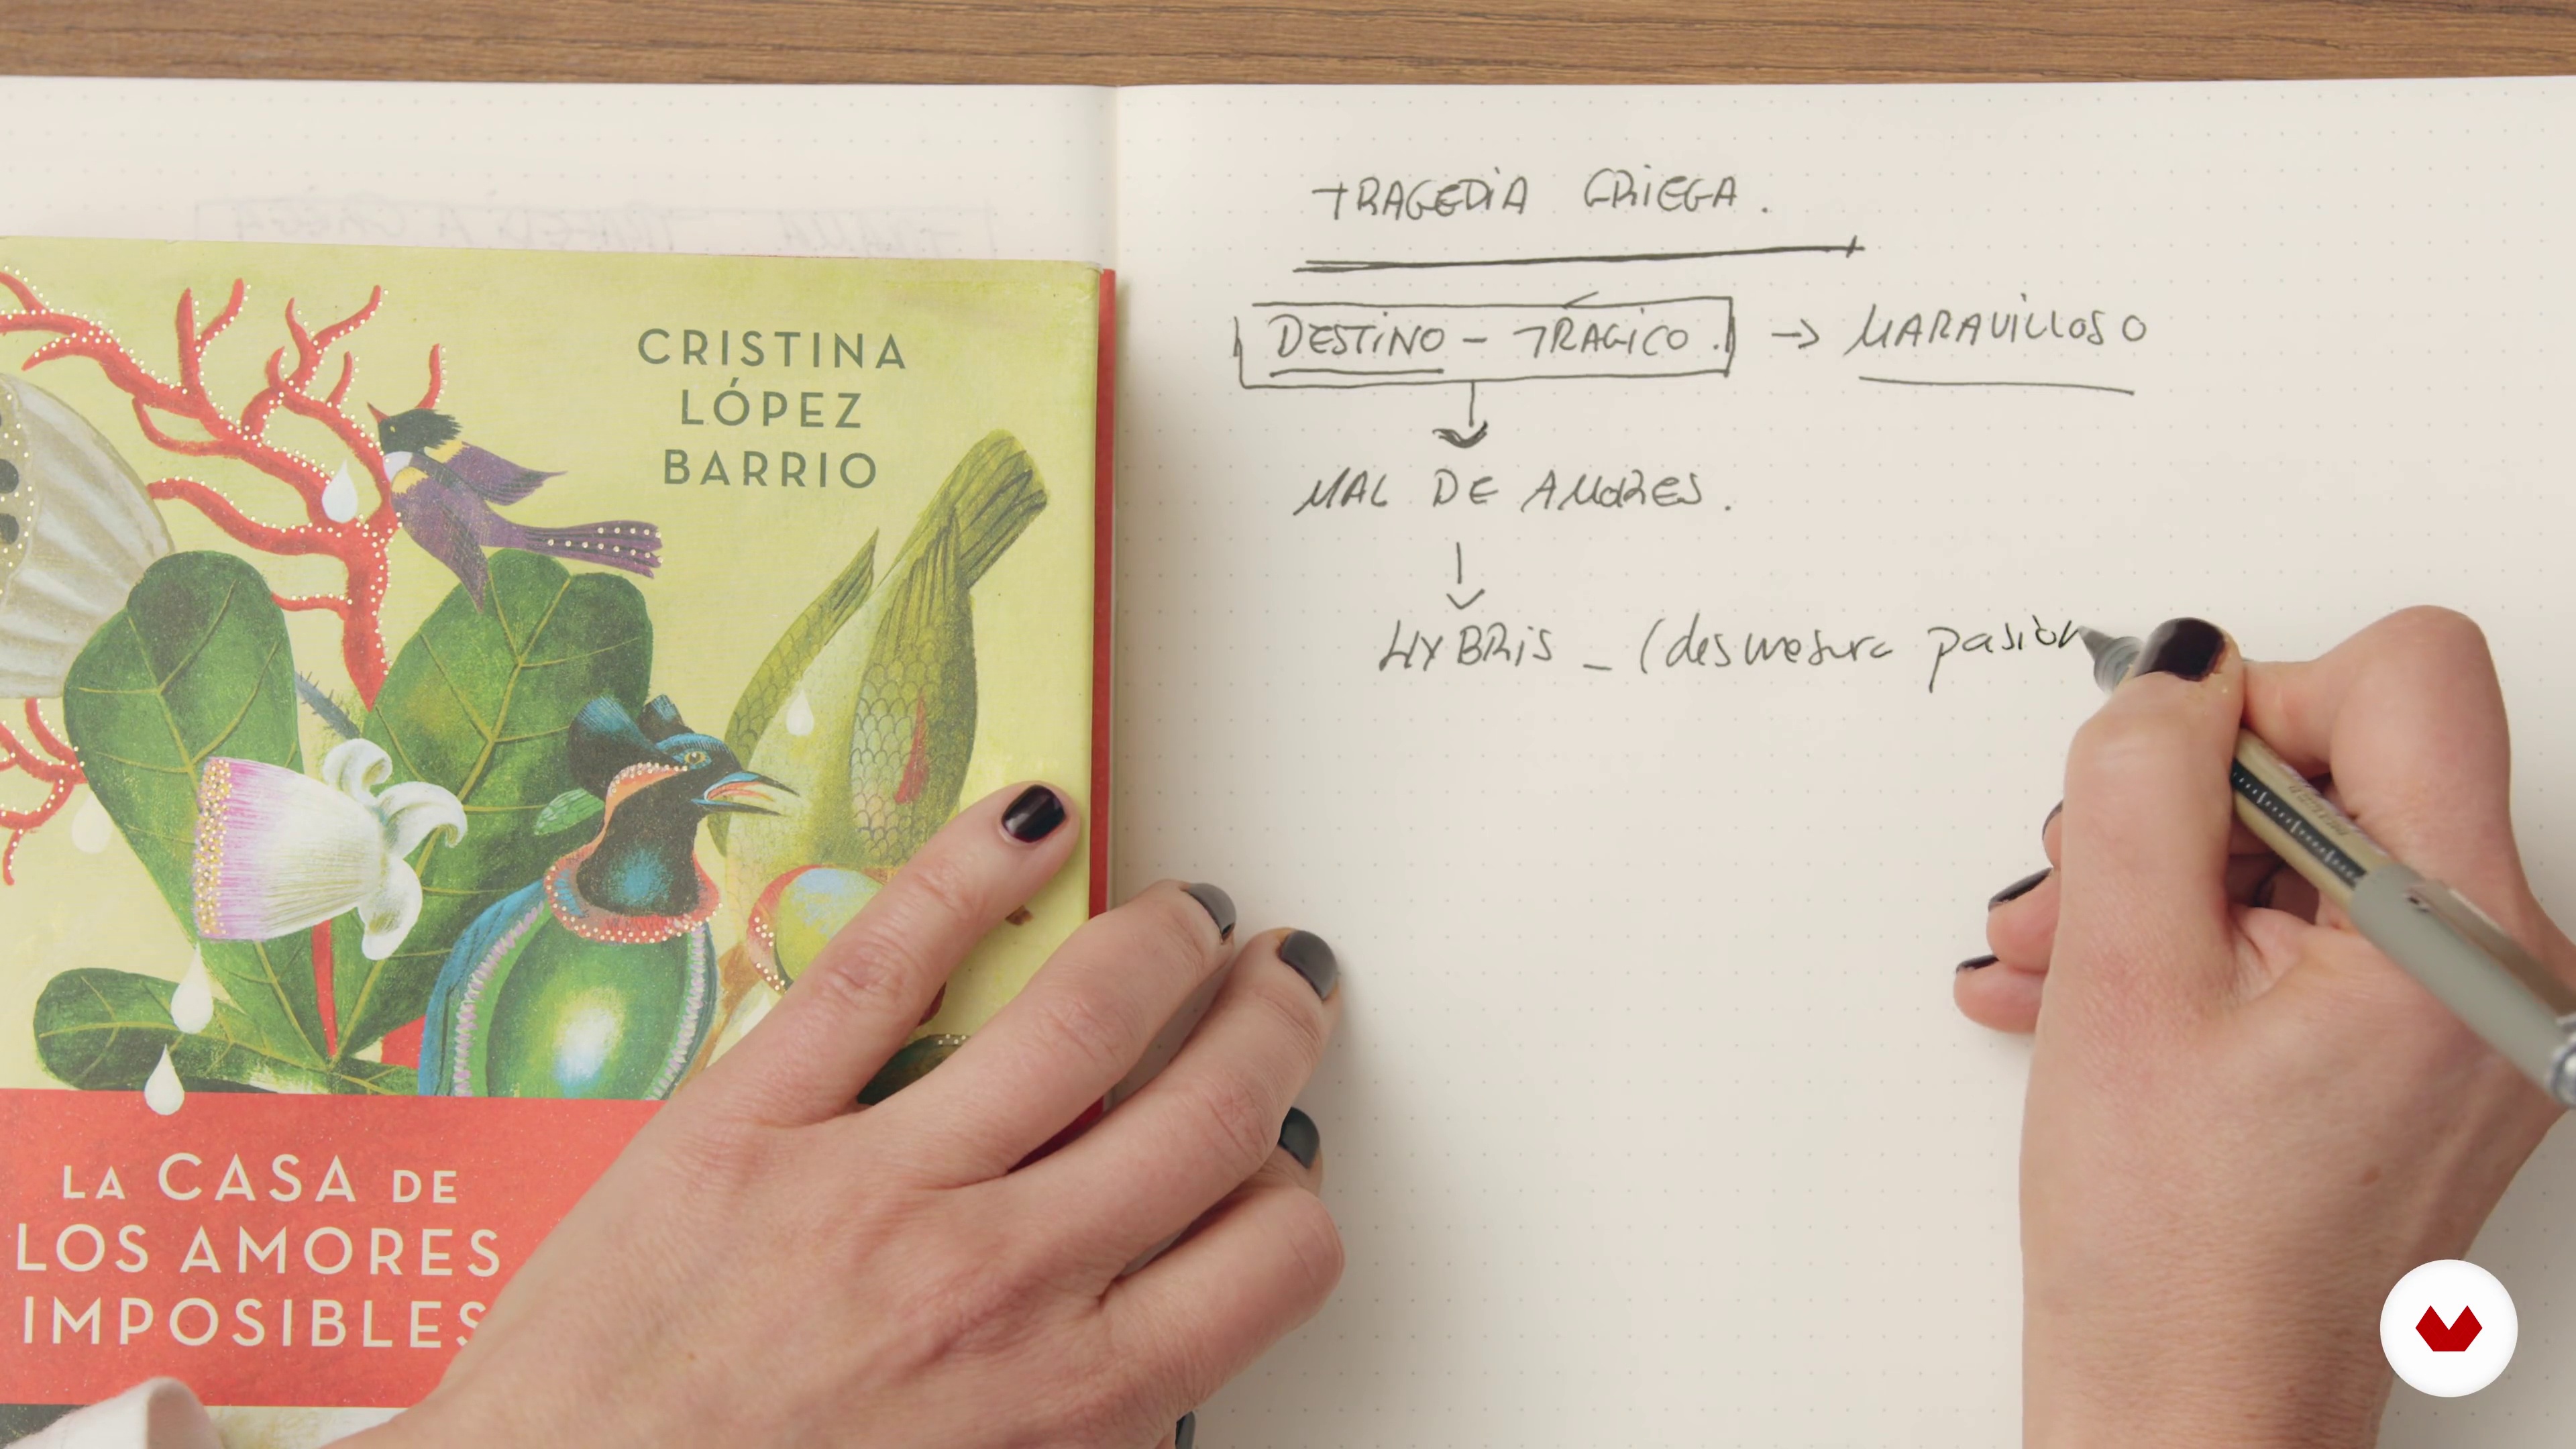 CRISTINA
LÓPEZ
BARRIO
LA CASA DE
LOS AMORES
IMPOSIBLES
TRAGEDIA GRIEGA.
DESTINO - TRAGICO. → MARAVILLOSO
MAL DE AMORES.
HYBRIS - (desmesura pasión